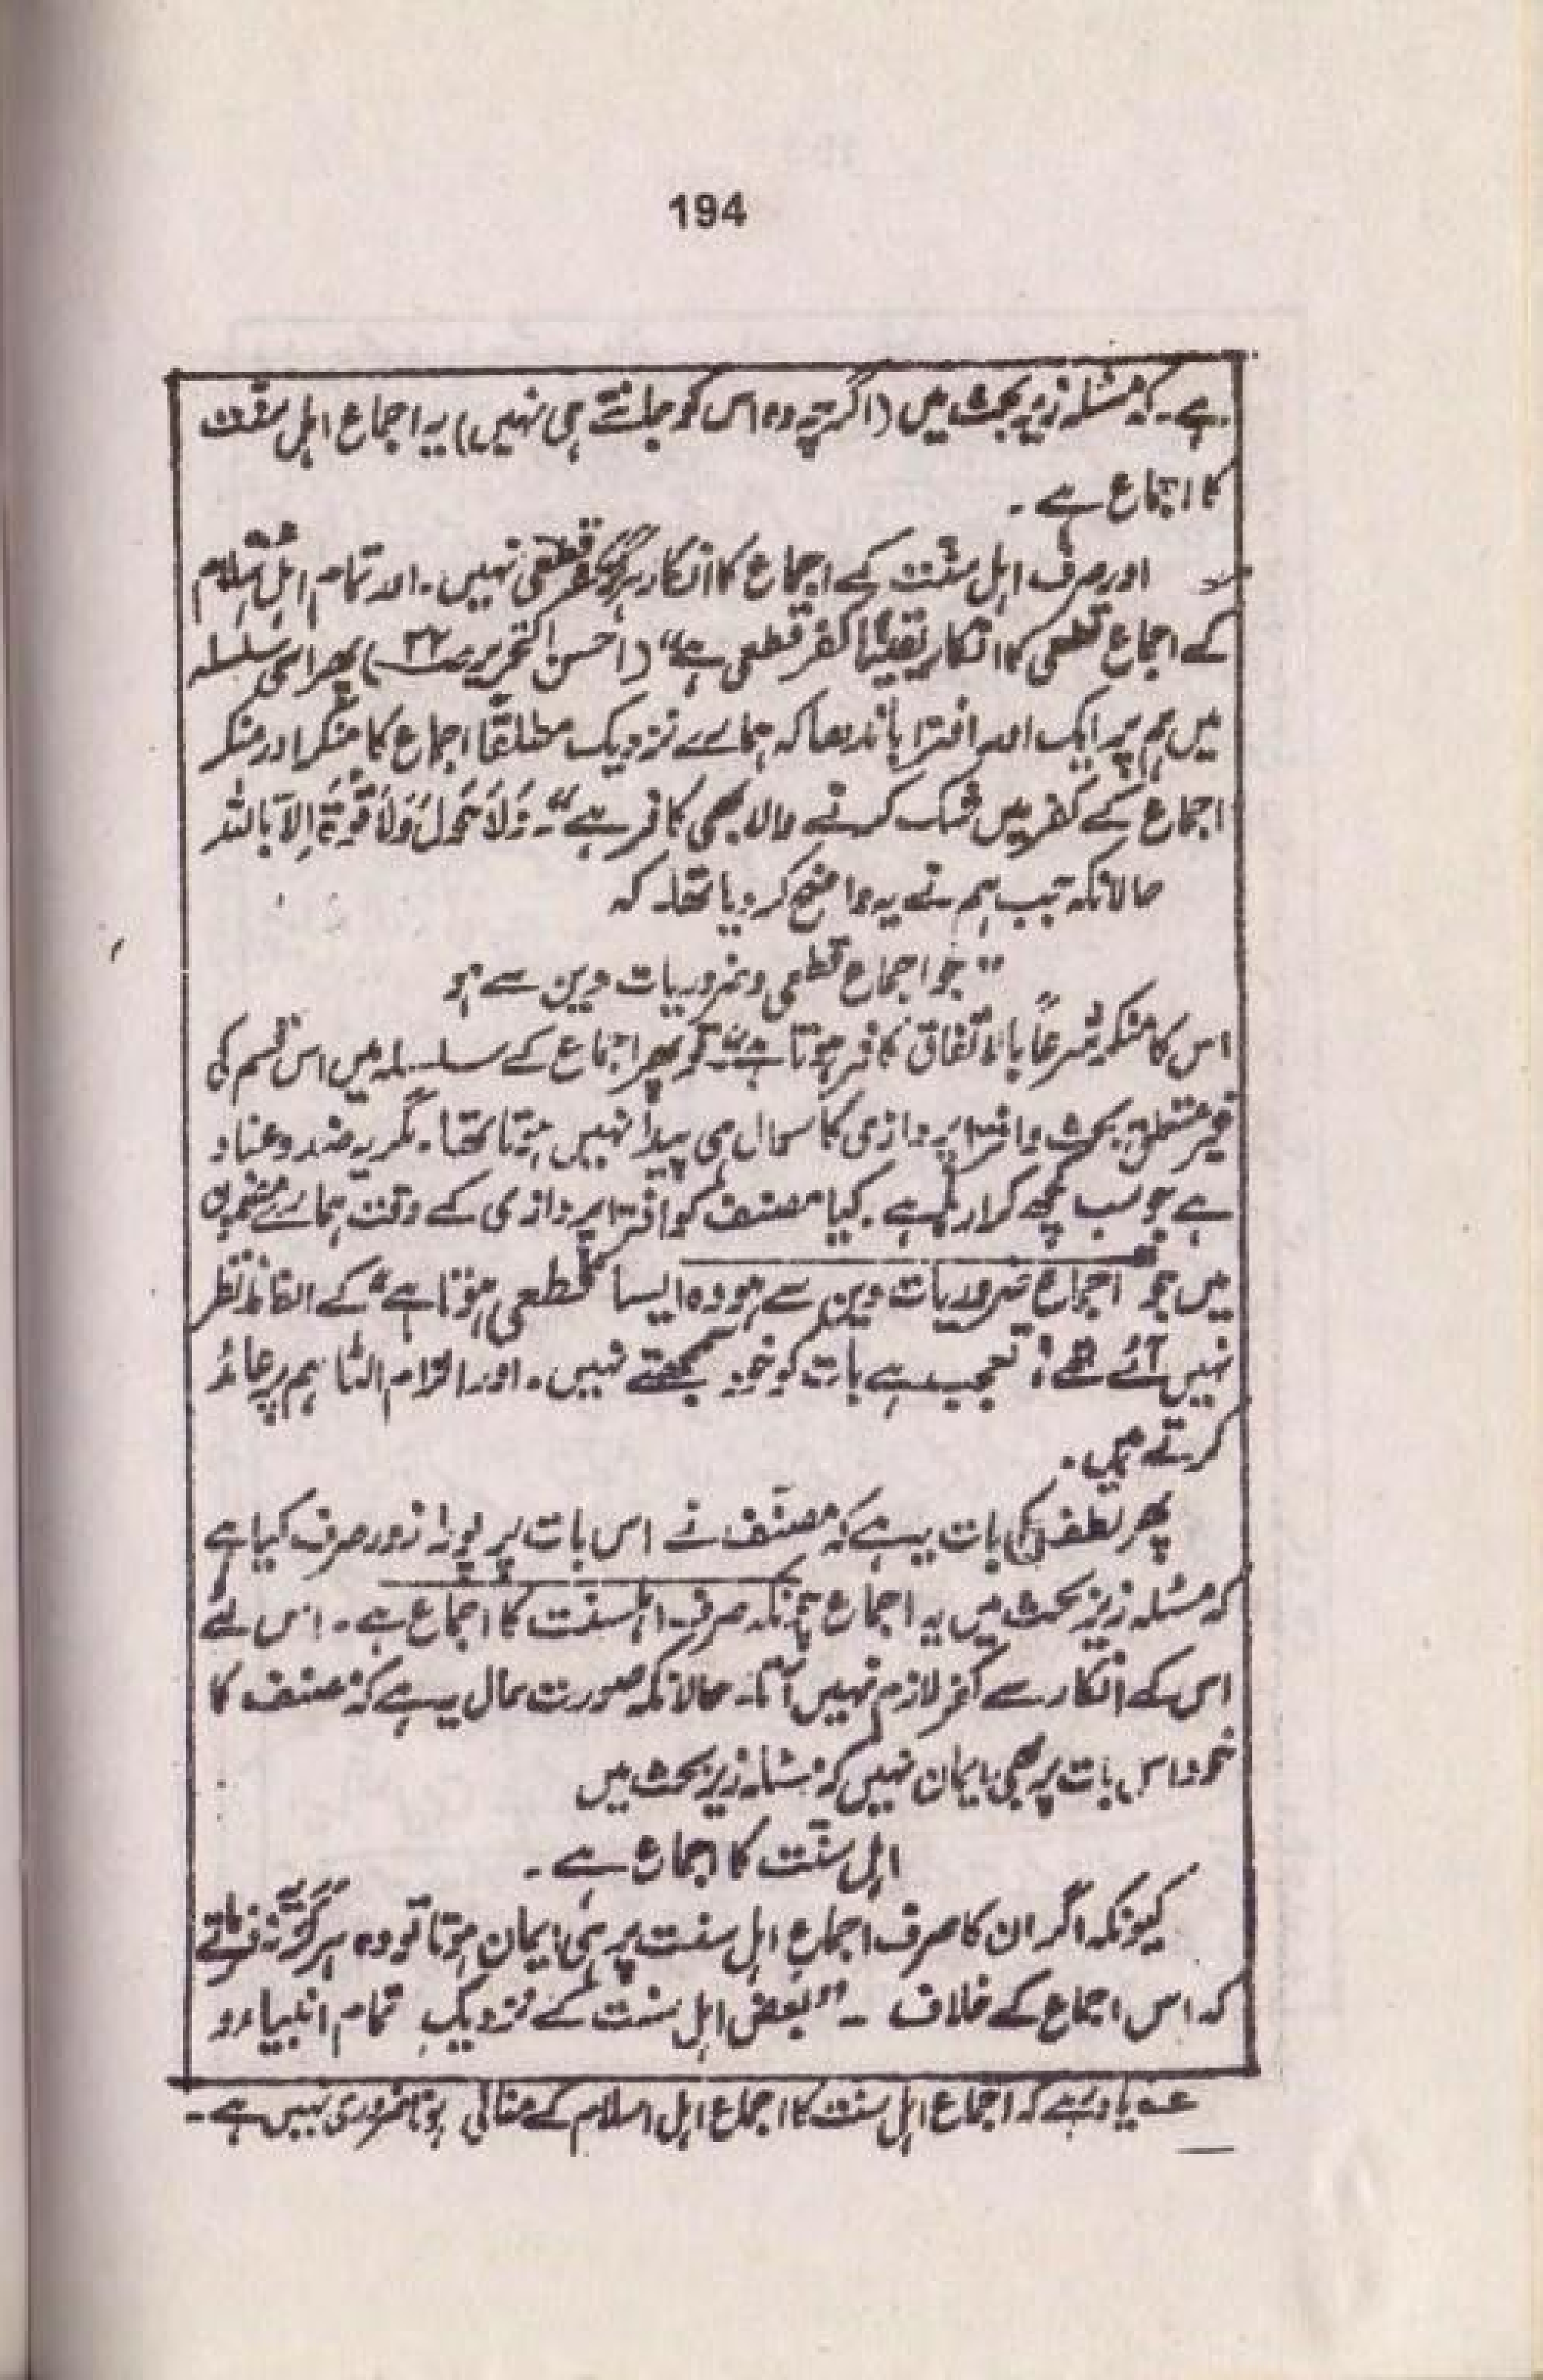 194
ہے۔ کہ مسئلہ زیر بحث میں (اگرچہ وہ اس کو جانتے ہی نہیں) یہ اجماع اہل سنت
کا اجماع ہے۔
اور صرف اہل سنت کے اجماع کا انکار ہرگز کفر قطعی نہیں۔ اور تمام اہل اسلام
کے اجماع قطعی کا انکار یقیناً کفر قطعی ہے“ (احسن التحریر ص) پھر اسی سلسلہ
میں ہم پر ایک اور افترا باندھا کہ ہمارے نزدیک مطلقاً اجماع کا منکر اور منکر
اجماع کے کفر میں شک کرنے والا بھی کافر ہے“۔ وَلَا حَوْلَ وَلَا قُوَّةَ اِلَّا بِاللہ
حالانکہ جب ہم نے یہ واضح کر دیا تھا۔ کہ
”جو اجماع قطعی و ضروریات دین سے ہو
اس کا منکر شرعاً بالاتفاق کافر ہوتا ہے“ تو پھر اجماع کے سلسلہ میں اس قسم کی
غیر متعلق بحث و افترا پردازی کا سوال ہی پیدا نہیں ہوتا تھا۔ مگر یہ ضد و عناد
ہے جو سب کچھ کرا رہا ہے۔ کیا مصنف کو افترا پردازی کے وقت ہمارے مضمون
میں جو ”اجماع ضروریات دین سے ہو وہ ایسا قطعی ہوتا ہے“ کے الفاظ نظر
نہیں آئے تھے؟ تعجب ہے بات کو خود سمجھتے نہیں۔ اور الزام الٹا ہم پر عائد
کرتے ہیں۔
پھر لطف کی بات یہ ہے کہ مصنف نے اس بات پر پورا زور صرف کیا ہے
کہ مسئلہ زیر بحث میں یہ اجماع چونکہ صرف اہلسنت کا اجماع ہے۔ اس لئے
اس کے انکار سے کفر لازم نہیں آتا۔ حالانکہ صورت حال یہ ہے کہ مصنف کا
خود اس بات پر بھی ایمان نہیں کہ مسئلہ زیر بحث میں
اہل سنت کا اجماع ہے۔
کیونکہ اگر ان کا صرف اجماع اہل سنت پر ہی ایمان ہوتا تو وہ ہرگز یہ نہ فرماتے
کہ اس اجماع کے خلاف ۔ ”بعض اہل سنت کے نزدیک تمام انبیاء و
عہ یاد رہے کہ اجماع اہل سنت کا اجماع اہل اسلام کے منافی ہونا ضروری نہیں ہے۔